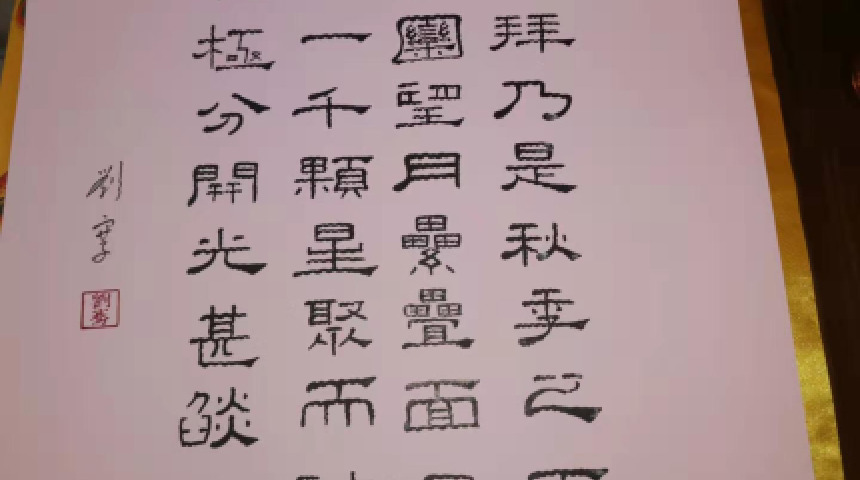 拜乃是秋季之
圞望月纍疊面
一千顆星聚而
極分開光甚燄
劉